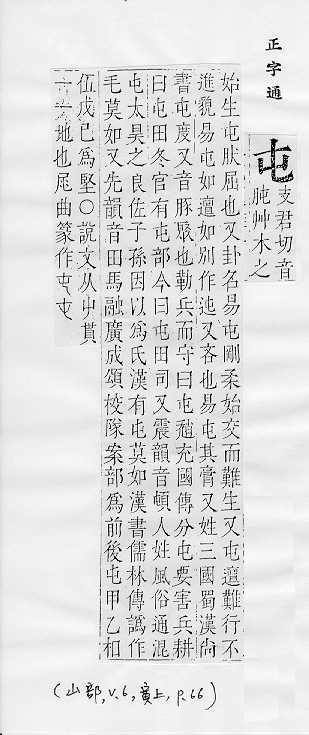 正字通
屯
支君切音
肫艸木之
始生屯肰屈也又卦名易屯剛柔始交而難生又屯邅難行不
進貌易屯如邅如別作迍又吝也易屯其膏又姓三國蜀漢尚
書屯度又音豚聚也勒兵而守曰屯趙充國傳分屯要害兵耕
曰屯田冬官有屯部今曰屯田司又震韻音頓人姓風俗通混
屯太昊之良佐子孫因以爲氏漢有屯莫如漢書儒林傳譌作
毛莫如又先韻音田馬融廣成頌校隊案部爲前後屯甲乙相
伍戊己爲堅○說文从屮貫
一地也尾曲篆作屯屯
(山部, v.6, 寅上, p.66)